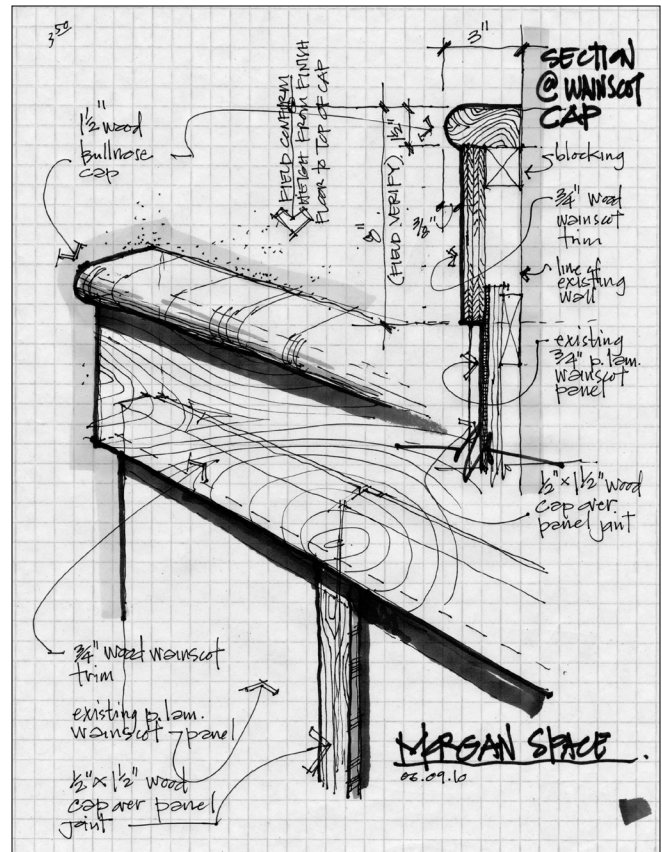 3⁵⁰
3"
SECTION
@ WAINSCOT
CAP
1½" wood
bullnose
cap
FIELD CONFIRM
HEIGH FROM FINISH
FLOOR TO TOP OF CAP
1½"
8"
(FIELD VERIFY)
3/8"
blocking
¾" wood
wainscot
trim
line of
existing
wall
existing
¾" p.lam.
wainscot
panel
½" x 1½" wood
cap over
panel joint
¾" wood wainscot
trim
existing p.lam.
wainscot panel
½" x 1½" wood
cap over panel
joint
MORGAN SPACE
06.09.10